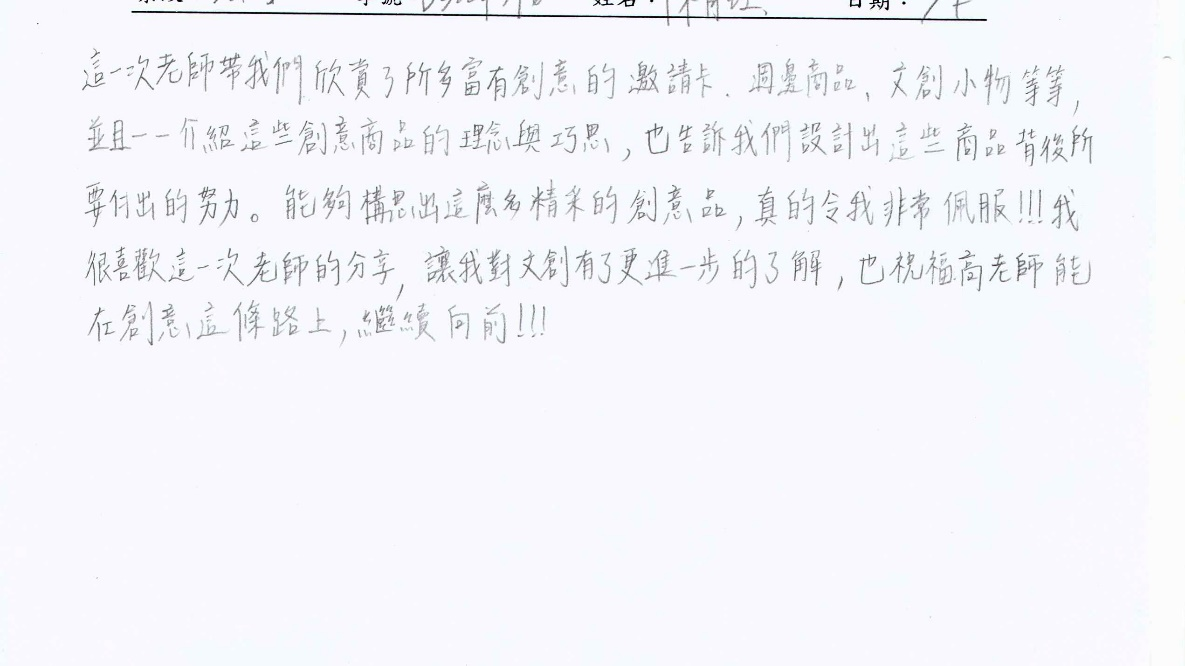 姓名： 日期：
這一次老師帶我們欣賞了所多富有創意的邀請卡、週邊商品、文創小物等等，
並且一一介紹這些創意商品的理念與巧思，也告訴我們設計出這些商品背後所
要付出的努力。能夠構思出這麼多精采的創意品，真的令我非常佩服!!!我
很喜歡這一次老師的分享，讓我對文創有了更進一步的了解，也祝福高老師能
在創意這條路上，繼續向前!!!